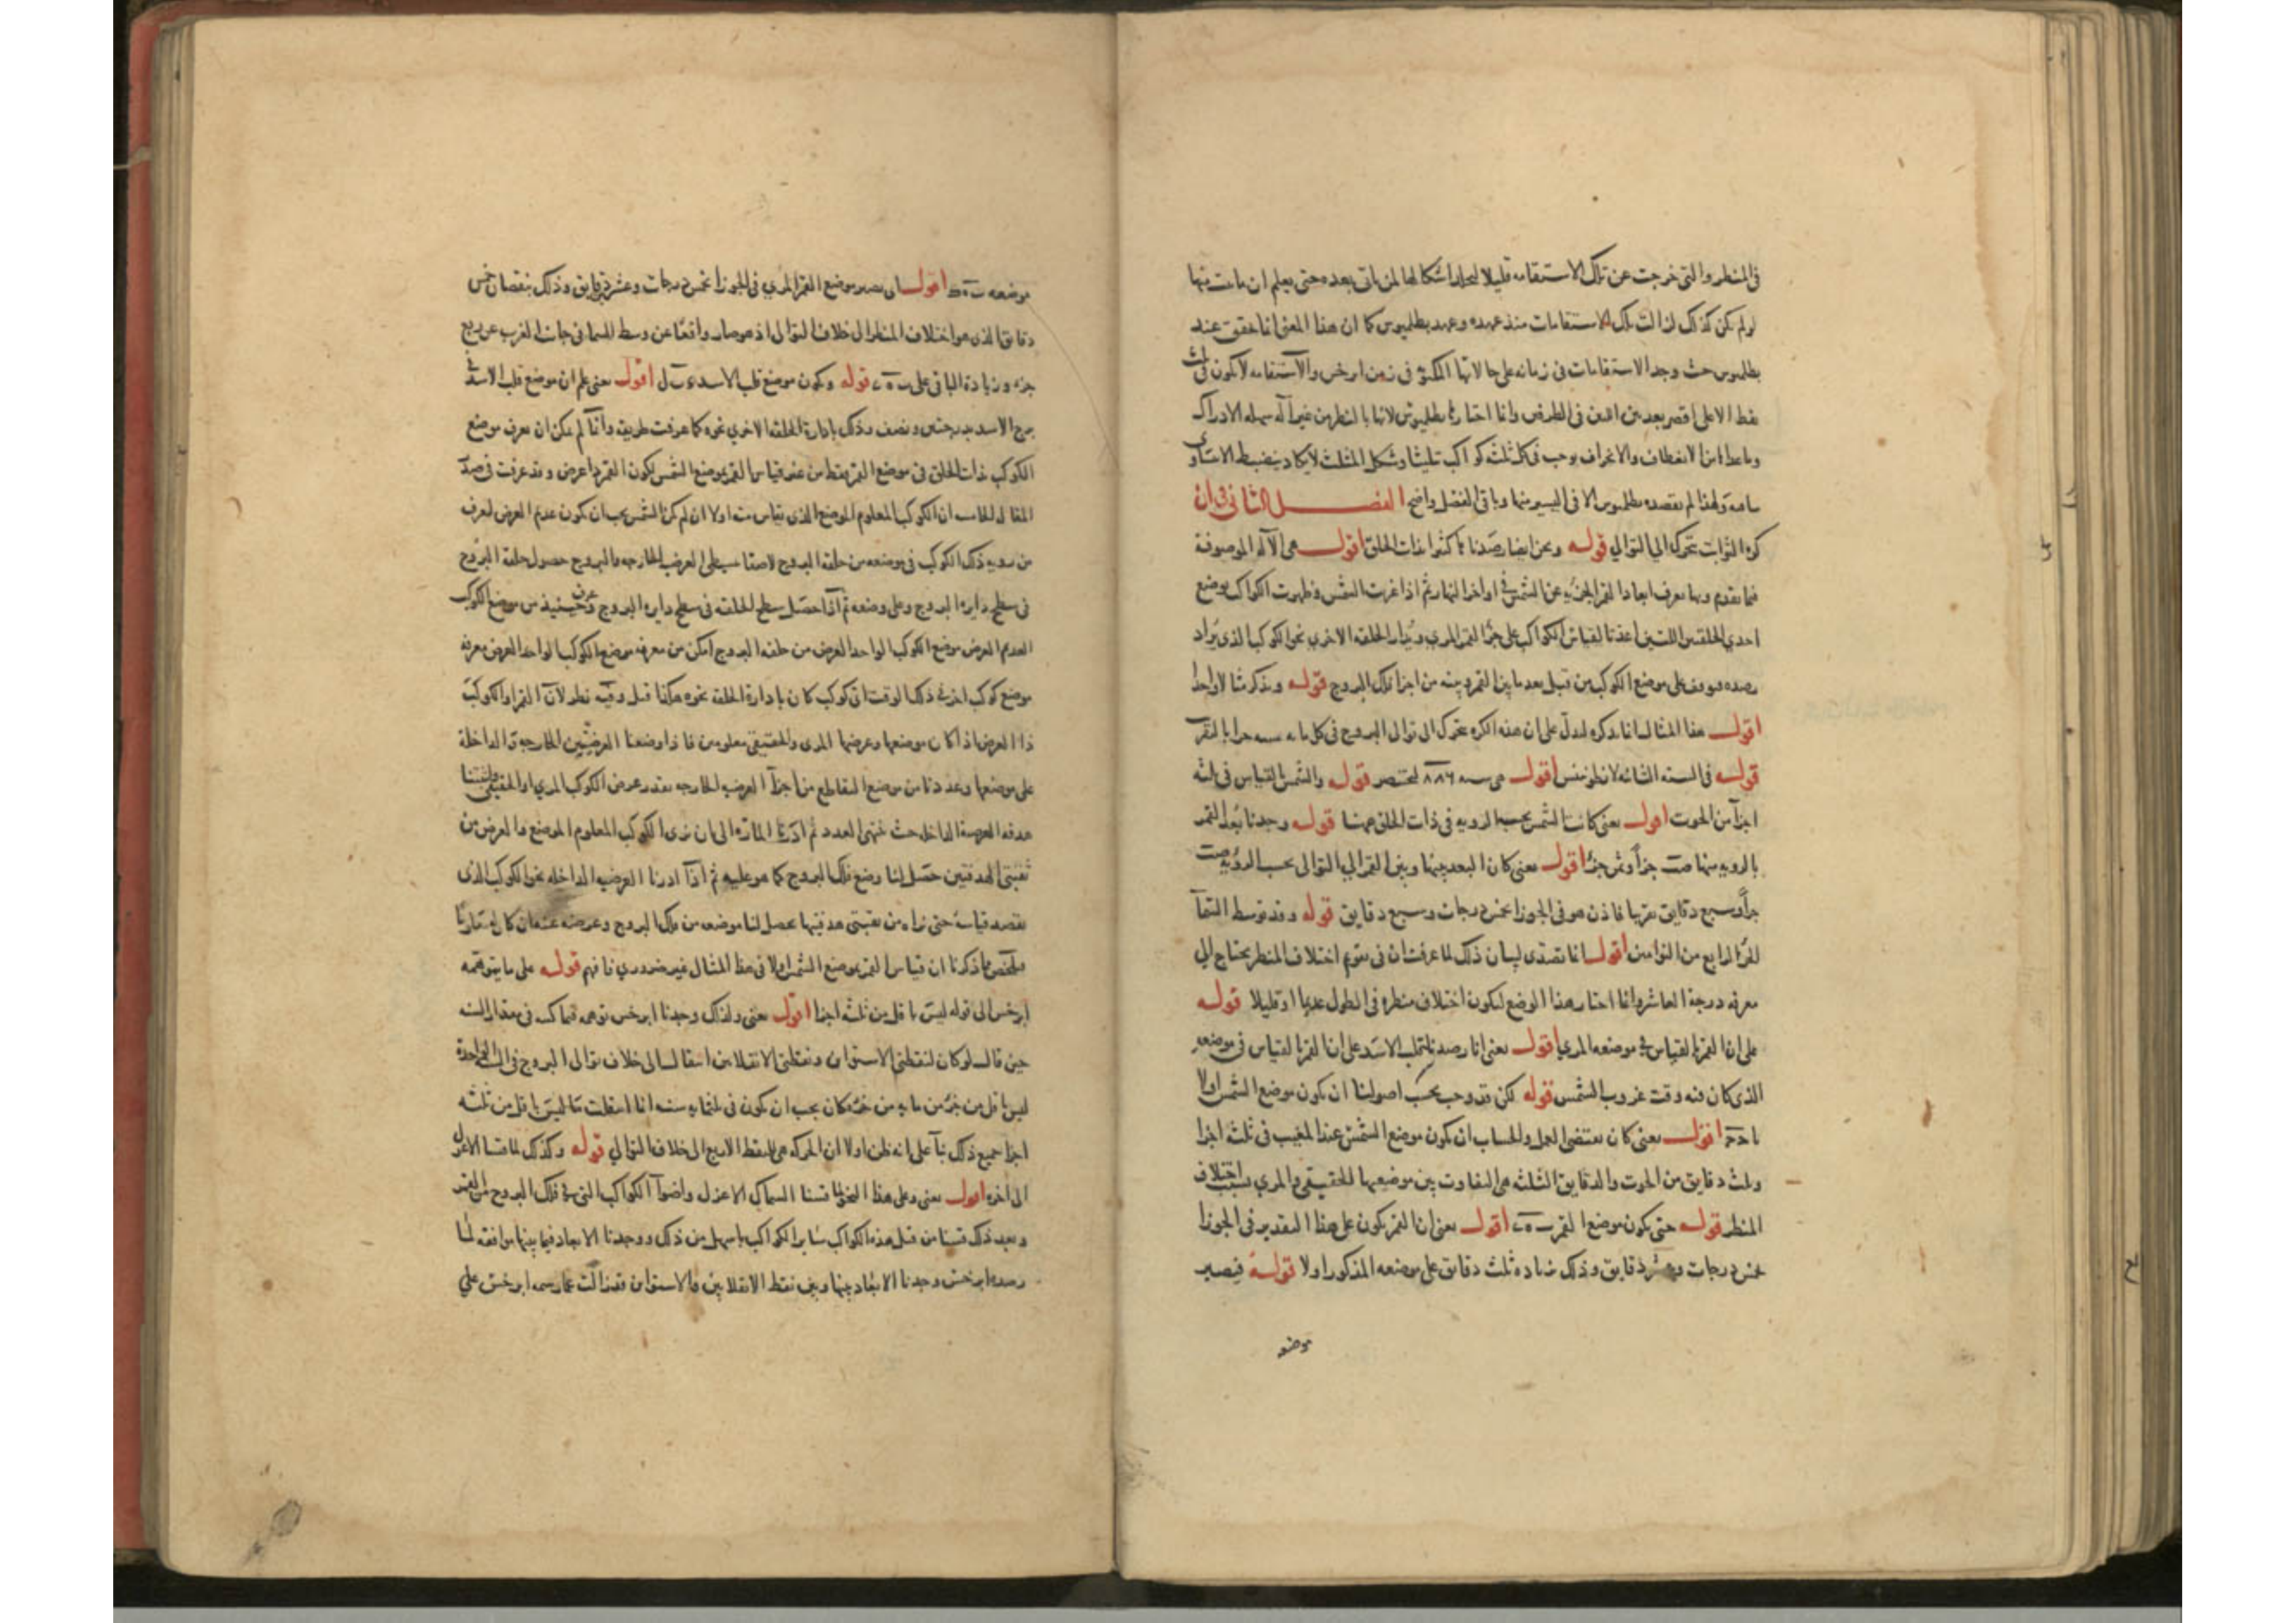 في المنظر والتي خرجت عن تلك الاستقامه قليلا ليحاذا اشكالها لمن ياتي بعده حتى يعلم ان ما بت منها
لو لم يكن كذلك لزالت تلك الاستقامات منذ عهده وعهد بطلميوس كما ان هذا المعنى انما تحقق عند
بطلميوس حيث وجد الاستقامات في زمانه على حالاتها المكتوبة في زمن ابرخس والاستقامه لا تكون في
نقط الاعلى اقصر بعد بين اثنين في الطرفين وانما اختارها بطلميوس لانها بالنظر من غير آله سهله الادراك
وما عداها من الانعطاف والانحراف يوجب في كل ثلثه كواكب تثليثا وشكل المثلث لا يكاد ينضبط
سامه ولهذا لم يقصده بطلميوس الا في اليسير منها وباقي الفصل واضح الفصل الثاني في ان
كرة الثوابت تتحرك الي التوالي قوله ونحن ايضا رصدنا باكثر ذات الحلق اقول هي الآله الموصوفة
فيما تقدم وبها نعرف ابعاد القمر الجزئيه عن الشمس في اواخر النهار ثم اذا غربت الشمس وظهرت الكواكب يوضع
احدي الحلقتين اللتين اعدتا لقياس الكواكب على جزء القمر المري ويدار الحلقه الاخري نحو الكوكب الذي يراد
رصده فيوقف على موضع الكوكب من قبل بعد ما بين القمر وبينه من اجزا فلك البروج قوله ونذكر مثالا واحدا
اقول هذا المثال انما يذكره ليدل على ان هذه الكره تتحرك الى توالي البروج في كل مايه سنه جزا بالتقريب
قوله في السنه الثانيه لانطونينس اقول هي سنه ٨٨٦ لبختنصر قوله والشمس بالقياس في ثلثه
اجزآ من الحوت اقول يعني كانت الشمس بحسب الرويه في ذات الحلق ههنا قوله وجدنا بعد القمر
بالرويه منها صت جزأ وثمن جزء اقول يعني كان البعد بينها وبين القمر الي التوالي بحسب الرؤيه صت
جزأ وسبع دقايق تقريبا فاذن هو في الجوزا بخمس درجات وسبع دقايق قوله وقد توسط السمآ
الجزء الرابع من التوأمين اقول انما تصدى لبيان ذلك لما عرفت ان في تقويم اختلاف المنظر يحتاج الي
معرفه درجة العاشر وانما اختار هذا الوضع ليكون اختلاف منظره في الطول عديما او قليلا قوله
على ان القمر بالقياس في موضعه المري اقول يعني انا رصدنا قلب الاسد على ان القمر بالقياس في موضعه
الذي كان فيه وقت غروب الشمس قوله لكن قد وجب بحسب اصولنا ان يكون موضع الشمس اولا
اقول يعني كان مقتضى العمل والحساب ان يكون موضع الشمس عند المغيب في ثلثه اجزا
وثلث دقايق من الحوت والدقايق الثلثه هي التفاوت بين موضعيها الحقيقي والمري بسبب اختلاف
المنظر قوله حتى يكون موضع القمر اقول يعني ان القمر يكون على هذا التقدير في الجوزا
بخمس درجات وعشر دقايق وذلك بزياده ثلث دقايق على موضعه المذكور اولا قوله فيصير
موضعه
موضعه اقول اى يصير موضع القمر المري في الجوزا بخمس درجات وعشر دقايق وذلك بنقصان خمس
دقايق الذي هو اختلاف المنظر الى خلاف التوالي اذ هو صار واقعا عن وسط السما في جانب الغرب عن ربع
جزء وزيادة الباقي على قوله ويكون موضع قلب الاسد اقول يعني علم ان موضع قلب الاسد في
برج الاسد بدرجتين ونصف وذلك بادارة الحلقه الاخري نحوه كما عرفت طريقه وانما لم يمكن ان نعرف موضع
الكوكب بذات الحلق في موضع القمر فقط من غير قياس القمر بموضع الشمس لكون القمر ذا عرض وقد عرفت في صدر
المقاله الخامسه ان الكوكب المعلوم الموضع الذي يقاس منه اولا ان لم يكن الشمس يجب ان يكون عديم العرض لنعرف
من رويه ذلك الكوكب في موضعه من حلقه البروج لاصقا بسطحى العرض الخارجه والبروج حصول حلقه البروج
في سطح دايرة البروج وعلى وضعه ثم اذا حصل سطح الحلقه في سطح دايرة البروج وحينئذ عرف من موضع الكوكب
العديم العرض موضع الكوكب الواحد العرض من حلقه البروج امكن من معرفه موضع الكوكب الواحد العرض معرفه
موضع كوكب اخر في ذلك الوقت اي كوكب كان بادارة الحلقه نحوه هكذا قيل وفيه نظر لان القمر او الكوكب
ذا العرض اذا كان موضعها وعرضها المري والحقيقي معلومين فاذا وضعنا العرضيتين الخارجة والداخلة
على موضعها وعددنا من موضع التقاطع من اجزآ العرضيه الخارجه بقدر عرض الكوكب المري او الحقيقي
هدفه العرضية الداخله حيث ينتهى العدد ثم ادرنا المارة الى ان نرى الكوكب المعلوم الموضع والعرض من
ثقبتي الهدفتين حصل لنا وضع فلك البروج كما هو عليه ثم اذا ادرنا العرضيه الداخله نحو الكوكب الذي
نقصد قياسه حتى نراه من ثقبتي هدفتيها يحصل لنا موضعه من فلك البروج وعرضه
فتلخص مما ذكرنا ان قياس القمر بموضع الشمس اولا في هذا المثال غير ضروري فافهم قوله على ما يتوهمه
ابرخس الى قوله ليس باقل من ثلثه اجزا اقول يعني ولذلك وجدنا ابرخس توهم فيما كتب في مقدار السنه
حين قال لو كان لنقطتي الاستوآين ونقطتي الانقلابين انتقال الى خلاف توالى البروج في السنة الواحدة
ليس باقل من جزء من مايه من جزء كان يجب ان يكون في ثلثمايه سنه انما انتقلت بما ليس باقل من ثلثه
اجزا جميع ذلك بنآ على انه ظن اولا ان الحركه هي للنقط الاربع الى خلاف التوالي قوله وكذلك لما قسنا الاعزل
الى اخره اقول يعني وعلى هذا النحو لما قسنا السماك الاعزل واضوآ الكواكب التي في فلك البروج من القمر
وبعد ذلك قسنا من قبل هذه الكواكب ساير الكواكب باسهل من ذلك ووجدنا الابعاد فيما بينها موافقه لما
رصده ابرخس ووجدنا الابعاد بينها وبين نقط الانقلابين والاستواين قد زالت عما رسمه ابرخس علي